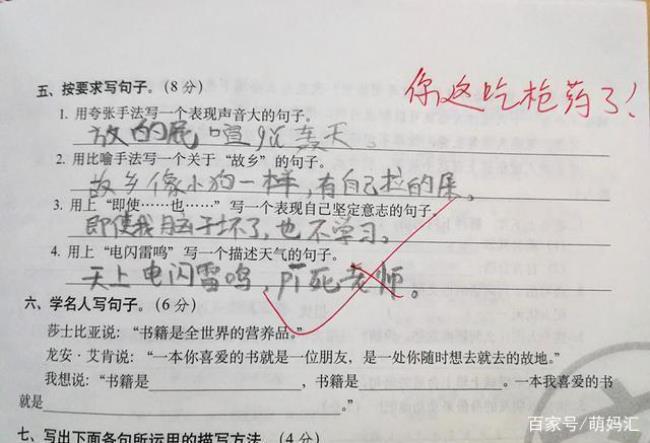 你这吃枪药了！
五、按要求写句子。（8 分）
1. 用夸张手法写一个表现声音大的句子。
放的屁喧轰天。
2. 用比喻手法写一个关于“故乡”的句子。
故乡像小狗一样，有自己拉的屎。
3. 用上“即使……也……”写一个表现自己坚定意志的句子。
即使我脑子坏了，也不学习。
4. 用上“电闪雷鸣”写一个描述天气的句子。
天上电闪雷鸣，吓死老师。
六、学名人写句子。（6 分）
莎士比亚说：“书籍是全世界的营养品。”
龙安·艾肯说：“一本你喜爱的书就是一位朋友，是一处你随时想去就去的故地。”
我想说：“书籍是____________，书籍是____________。一本我喜爱的书
就是____________。”
七、写出下面各句所运用的描写方法。（4 分）
百家号/萌妈汇